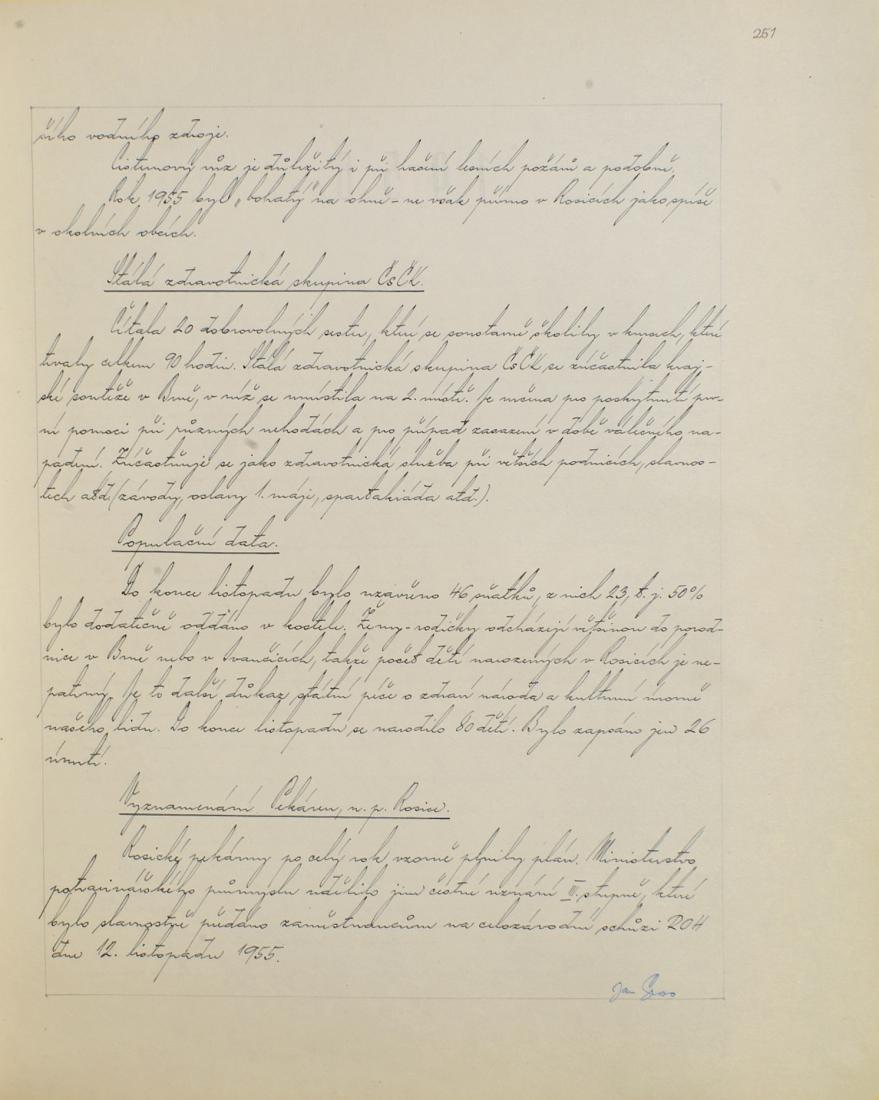 251
šího vodního zdroje.
Cisternový vůz je důležitý i při hašení lesních požárů a podobně.
Rok 1955 byl „bohatý" na ohně - ne však přímo v Rosicích jako spíše
v okolních obcích.
Stálá zdravotnická skupina ČsČK.
Čítala 20 dobrovolných sester, které se soustavně školily v kursech, které
trvaly celkem 90 hodin. Stálá zdravotnická skupina ČsČK se zúčastnila kraj-
ské soutěže v Brně, v níž se umístila na 2. místě. Je určena pro poskytnutí prv-
ní pomoci při různých nehodách a pro případ zasazení v době válečného na-
padení. Zúčastňuje se jako zdravotnická služba při větších podnicích, slavnos-
tech atd. (závody, oslavy 1. máje, spartakiáda atd.).
Populační data.
Do konce listopadu bylo uzavřeno 46 sňatků, z nich 23, t. j. 50%
bylo dodatečně oddáno v kostele. Ženy-rodičky odcházejí většinou do porod-
nice v Brně nebo v Ivančicích, takže počet dětí narozených v Rosicích je ne-
patrný. Je to další důkaz státní péče o zdraví národa a kulturní úrovně
našeho lidu. Do konce listopadu se narodilo 80 dětí. Bylo zapsáno jen 26
úmrtí.
Vyznamenání Pekáren, n. p. Rosice.
Rosické pekárny po celý rok vzorně plnily plán. Ministerstvo
potravinářského průmyslu udělilo jim čestné uznání III. stupně, které
bylo slavnostně předáno zaměstnancům na celozávodní schůzi ROH
dne 12. listopadu 1955.
Jan